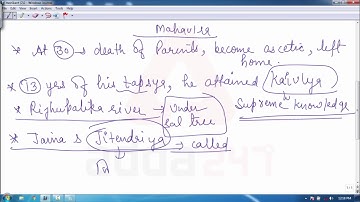 Mahavira
* At 30 → death of Parents, become ascetic, left home.
* 13 yrs of his tapsya, he attained Kaivlya
Supreme knowledge
* Rijhupalika river → Under sal tree
* Jaina s Jitendriya → called
adda247